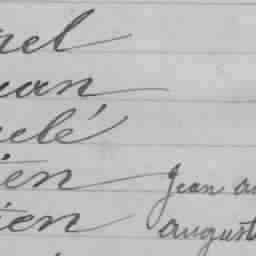 el
uan
elé
ien Jean a
ien august